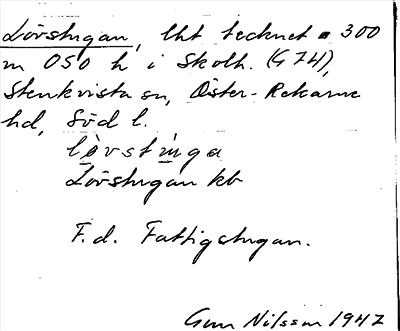 Lövstugan, lht tecknet • 300
m OSO h i Skolh. (G 74),
Stenkvista sn, Öster-Rekarne
hd, Söd l.
lòvstúga
Lövstugan kb
F.d. Fattigstugan.
Gun Nilsson 1947